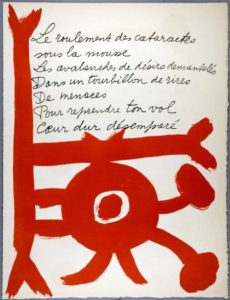 Le roulement des cataractes
sous la mousse
Les avalanches de désirs démantelés
Dans un tourbillon de rires
De menaces
Pour reprendre ton vol
Cœur dur désemparé